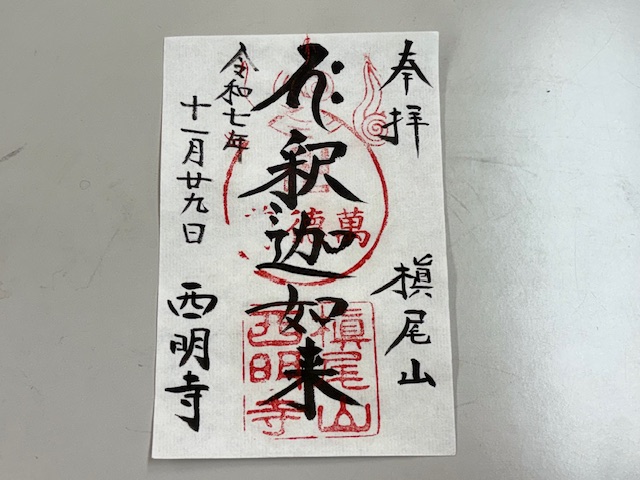 奉拝
槙尾山
釈迦如来
令和七年
十一月廿九日
西明寺
萬德
槇尾山
西明寺